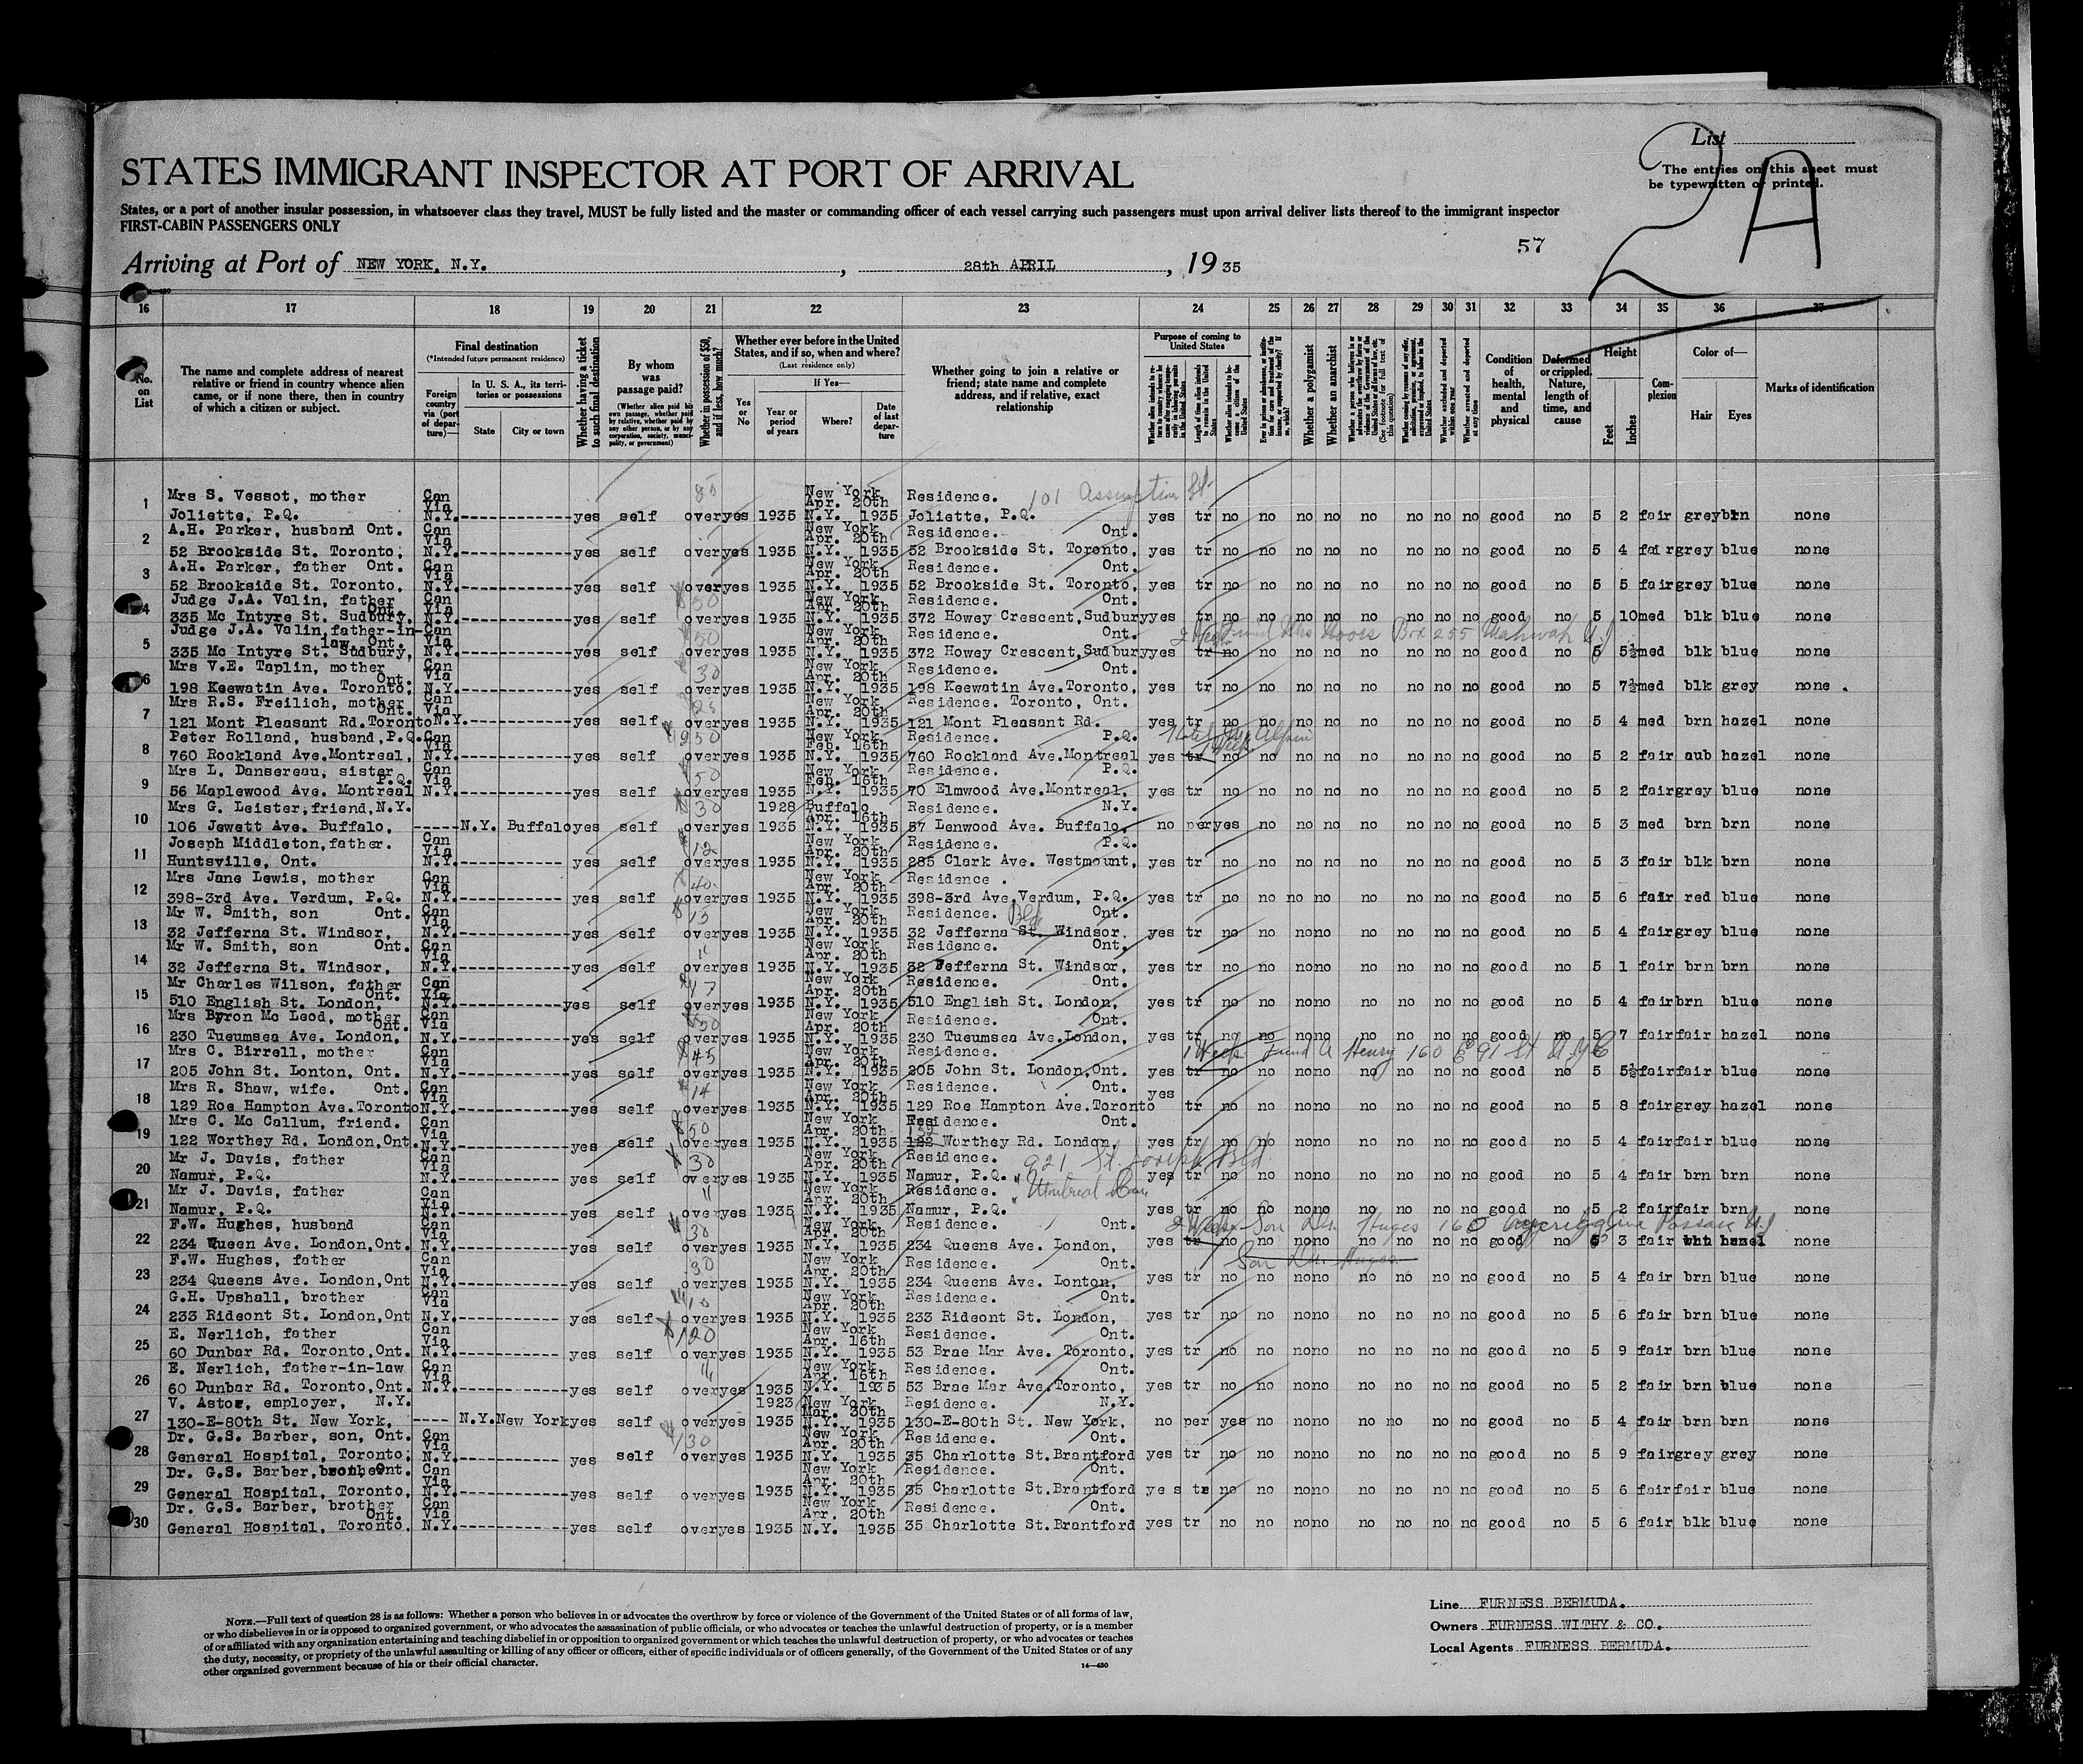 List
The entries on this sheet must
be typewritten or printed.
2 A
STATES IMMIGRANT INSPECTOR AT PORT OF ARRIVAL
States, or a port of another insular possession, in whatsoever class they travel, MUST be fully listed and the master or commanding officer of each vessel carrying such passengers must upon arrival deliver lists thereof to the immigrant inspector
FIRST-CABIN PASSENGERS ONLY
57
Arriving at Port of NEW YORK, N.Y. , 28th APRIL , 1935
16 17 18 19 20 21 22 23 24 25 26 27 28 29 30 31 32 33 34 35 36 37
No. on List
The name and complete address of nearest relative or friend in country whence alien came, or if none there, then in country of which a citizen or subject.
Final destination
(*Intended future permanent residence)
Foreign country via (port of departure)—
In U. S. A., its territories or possessions
State
City or town
Whether having a ticket to such final destination
By whom was passage paid?
(Whether alien paid his own passage, whether paid by relative, whether paid by any other person, or by any corporation, society, municipality, or government)
Whether in possession of $50, and if less, how much?
Whether ever before in the United States, and if so, when and where?
(Last residence only)
Yes or No
If Yes—
Year or period of years
Where?
Date of last departure
Whether going to join a relative or friend; state name and complete address, and if relative, exact relationship
Purpose of coming to United States
Whether a polygamist
Whether an anarchist
Condition of health, mental and physical
Deformed or crippled. Nature, length of time, and cause
Height
Feet
Inches
Complexion
Color of—
Hair
Eyes
Marks of identification
1 Mrs S. Vessot, mother Can Via New York Apr. 20th Residence. 101 Assumption St.
Joliette, P.Q. N.Y. yes self over yes 1935 N.Y. 1935 Joliette, P.Q. yes tr no no no no no no no no good no 5 2 fair grey brn none
2 A.H. Parker, husband Ont. Can Via New York Apr. 20th Residence. Ont.
52 Brookside St. Toronto, N.Y. yes self over yes 1935 N.Y. 1935 52 Brookside St. Toronto, yes tr no no no no no no no no good no 5 4 fair grey blue none
3 A.H. Parker, father Ont. Can Via New York Apr. 20th Residence. Ont.
52 Brookside St. Toronto, N.Y. yes self over yes 1935 N.Y. 1935 52 Brookside St. Toronto, yes tr no no no no no no no no good no 5 5 fair grey blue none
4 Judge J.A. Valin, father Ont. Can Via 50 New York Apr. 20th Residence. Ont.
335 Mc Intyre St. Sudbury. N.Y. yes self over yes 1935 N.Y. 1935 372 Howey Crescent, Sudbury yes tr no no no no no no no no good no 5 10 med blk blue none
5 Judge J.A. Valin, father-in-law Ont. Can Via 50 New York Apr. 20th Residence. Ont. Box 255 Mahwah N.J
335 Mc Intyre St. Sudbury, N.Y. yes self over yes 1935 N.Y. 1935 372 Howey Crescent, Sudbury yes tr no no no no no no no no good no 5 5½ med blk blue none
6 Mrs V.E. Taplin, mother Ont. Can Via 30 New York Apr. 20th Residence. Ont.
198 Keewatin Ave. Toronto, N.Y. yes self over yes 1935 N.Y. 1935 198 Keewatin Ave. Toronto, yes tr no no no no no no no no good no 5 7½ med blk grey none
7 Mrs R.S. Freilich, mother Ont. Can Via New York Apr. 20th Residence. Toronto, Ont.
121 Mont Pleasant Rd. Toronto N.Y. yes self over yes 1935 N.Y. 1935 121 Mont Pleasant Rd. yes tr no no no no no no no no good no 5 4 med brn hazel none
8 Peter Rolland, husband, P.Q. Can Via 250 New York Feb. 16th Residence. P.Q.
760 Rockland Ave. Montreal, N.Y. yes self over yes 1935 N.Y. 1935 760 Rockland Ave. Montreal yes tr no no no no no no no no good no 5 2 fair aub hazel none
9 Mrs L. Dansereau, sister P.Q. Can Via 50 New York Feb. 16th Residence. P.Q.
56 Maplewood Ave. Montreal N.Y. yes self over yes 1935 N.Y. 1935 70 Elmwood Ave. Montreal, yes tr no no no no no no no no good no 5 2 fair grey blue none
10 Mrs G. Leister, friend, N.Y. 30 1928 Buffalo Apr. 16th Residence. N.Y.
106 Jewett Ave. Buffalo, N.Y. Buffalo yes self over yes 1935 N.Y. 1935 57 Lenwood Ave. Buffalo. no per yes no no no no no no no good no 5 3 med brn brn none
11 Joseph Middleton, father. Can Via 12 New York Apr. 20th Residence. P.Q.
Huntsville, Ont. N.Y. yes self over yes 1935 N.Y. 1935 285 Clark Ave. Westmount, yes tr no no no no no no no no good no 5 3 fair blk brn none
12 Mrs Jane Lewis, mother Can Via 40 New York Apr. 20th Residence .
398-3rd Ave. Verdum, P.Q. N.Y. yes self over yes 1935 N.Y. 1935 398-3rd Ave. Verdum, P.Q. yes tr no no no no no no no no good no 5 6 fair red blue none
13 Mr W. Smith, son Ont. Can Via 15 New York Apr. 20th Residence. Bld Ont.
32 Jefferna St. Windsor, N.Y. yes self over yes 1935 N.Y. 1935 32 Jefferna St. Windsor, yes tr no no no no no no no no good no 5 4 fair grey blue none
14 Mr W. Smith, son Ont. Can Via " New York Apr. 20th Residence. Ont.
32 Jefferna St. Windsor, N.Y. yes self over yes 1935 N.Y. 1935 32 Jefferna St. Windsor, yes tr no no no no no no no no good no 5 1 fair brn brn none
15 Mr Charles Wilson, father Ont. Can Via 47 New York Apr. 20th Residence. Ont.
510 English St. London, N.Y. yes self over yes 1935 N.Y. 1935 510 English St. London, yes tr no no no no no no no no good no 5 4 fair brn blue none
16 Mrs Byron Mc Leod, mother Ont. Can Via 50 New York Apr. 20th Residence. Ont.
230 Tueumsea Ave. London, N.Y. yes self over yes 1935 N.Y. 1935 230 Tueumsea Ave. London, yes tr no no no no no no no no good no 5 7 fair fair hazel none
17 Mrs C. Birrell, mother Can Via 45 New York Apr. 20th Residence. 1 Week Friend A Henry 160 E 91 St N.Y.C
205 John St. Lonton, Ont. N.Y. yes self over yes 1935 N.Y. 1935 205 John St. London, Ont. yes tr no no no no no no no no good no 5 5½ fair fair blue none
18 Mrs R. Shaw, wife. Ont. Can Via 14 New York Apr. 20th Residence. Ont. yes
129 Roe Hampton Ave. Toronto N.Y. yes self over yes 1935 N.Y. 1935 129 Roe Hampton Ave. Toronto tr no no no no no no no no good no 5 8 fair grey hazel none
19 Mrs C. Mc Callum, friend. Can Via 50 New York Apr. 20th Residence. Ont.
122 Worthey Rd. London, Ont. N.Y. yes self over yes 1935 N.Y. 1935 122 Worthey Rd. London, yes tr no no no no no no no no good no 5 4 fair fair blue none
20 Mr J. Davis, father Can Via 30 New York Apr. 20th Residence. 921 St. Joseph Bld
Namur, P.Q. N.Y. yes self over yes 1935 N.Y. 1935 Namur, P.Q. yes tr no no no no no no no no good no 5 4 fair brn brn none
21 Mr J. Davis, father Can Via " New York Apr. 20th Residence. " Montreal
Namur, P.Q. N.Y. yes self over yes 1935 N.Y. 1935 Namur, P.Q. yes tr no no no no no no no no good no 5 2 fair fair blue none
22 F.W. Hughes, husband Can Via 30 New York Apr. 20th Residence. Ont. 2 Weeks Son Hughes 160 Passaic N.J
234 Queen Ave. London, Ont. N.Y. yes self over yes 1935 N.Y. 1935 234 Queens Ave. London, yes tr no no no no no no no no good no 5 3 fair wht hazel none
23 F.W. Hughes, father Can Via 30 New York Apr. 20th Residence. Ont. Son
234 Queens Ave. London, Ont N.Y. yes self over yes 1935 N.Y. 1935 234 Queens Ave. Lonton, yes tr no no no no no no no no good no 5 4 fair brn blue none
24 G.H. Upshall, brother Can Via 10 New York Apr. 20th Residence. Ont.
233 Rideont St. London, Ont N.Y. yes self over yes 1935 N.Y. 1935 233 Rideont St. London, yes tr no no no no no no no no good no 5 6 fair brn blue none
25 E. Nerlich, father Can Via 120 New York Apr. 16th Residence. Ont.
60 Dunbar Rd. Toronto, Ont. N.Y. yes self over yes 1935 N.Y. 1935 53 Brae Mar Ave. Toronto, yes tr no no no no no no no no good no 5 9 fair brn blue none
26 E. Nerlich, father-in-law Can Via " New York Apr. 16th Residence. Ont.
60 Dunbar Rd. Toronto, Ont. N.Y. yes self over yes 1935 N.Y. 1935 53 Brae Mar Ave. Toronto, yes tr no no no no no no no no good no 5 2 fair brn blue none
27 V. Astor, employer, N.Y. 1923 New York Mar. 30th Residence. N.Y.
130-E-80th St. New York, N.Y. New York yes self over yes 1935 N.Y. 1935 130-E-80th St. New York, no per yes no no no no no no no good no 5 4 fair brn brn none
28 Dr. G.S. Barber, son, Ont. Can Via 130 New York Apr. 20th Residence. Ont.
General Hospital, Toronto, N.Y. yes self over yes 1935 N.Y. 1935 35 Charlotte St. Brantford yes tr no no no no no no no no good no 5 9 fair grey grey none
29 Dr. G.S. Barber, Ont. Can Via New York Apr. 20th Residence. Ont.
General Hospital, Toronto, N.Y. yes self over yes 1935 N.Y. 1935 35 Charlotte St. Brantford yes tr no no no no no no no no good no 5 6 fair fair blue none
30 Dr. G.S. Barber, brother Ont. Can Via New York Apr. 20th Residence. Ont.
General Hospital, Toronto, N.Y. yes self over yes 1935 N.Y. 1935 35 Charlotte St. Brantford yes tr no no no no no no no no good no 5 6 fair blk blue none
NOTE.—Full text of question 28 is as follows: Whether a person who believes in or advocates the overthrow by force or violence of the Government of the United States or of all forms of law,
or who disbelieves in or is opposed to organized government, or who advocates the assassination of public officials, or who advocates or teaches the unlawful destruction of property, or is a member
of or affiliated with any organization entertaining and teaching disbelief in or opposition to organized government or which teaches the unlawful destruction of property, or who advocates or teaches
the duty, necessity, or propriety of the unlawful assaulting or killing of any officer or officers, either of specific individuals or of officers generally, of the Government of the United States or of any
other organized government because of his or their official character.
14—430
Line FURNESS BERMUDA.
Owners FURNESS WITHY & CO.
Local Agents FURNESS BERMUDA.